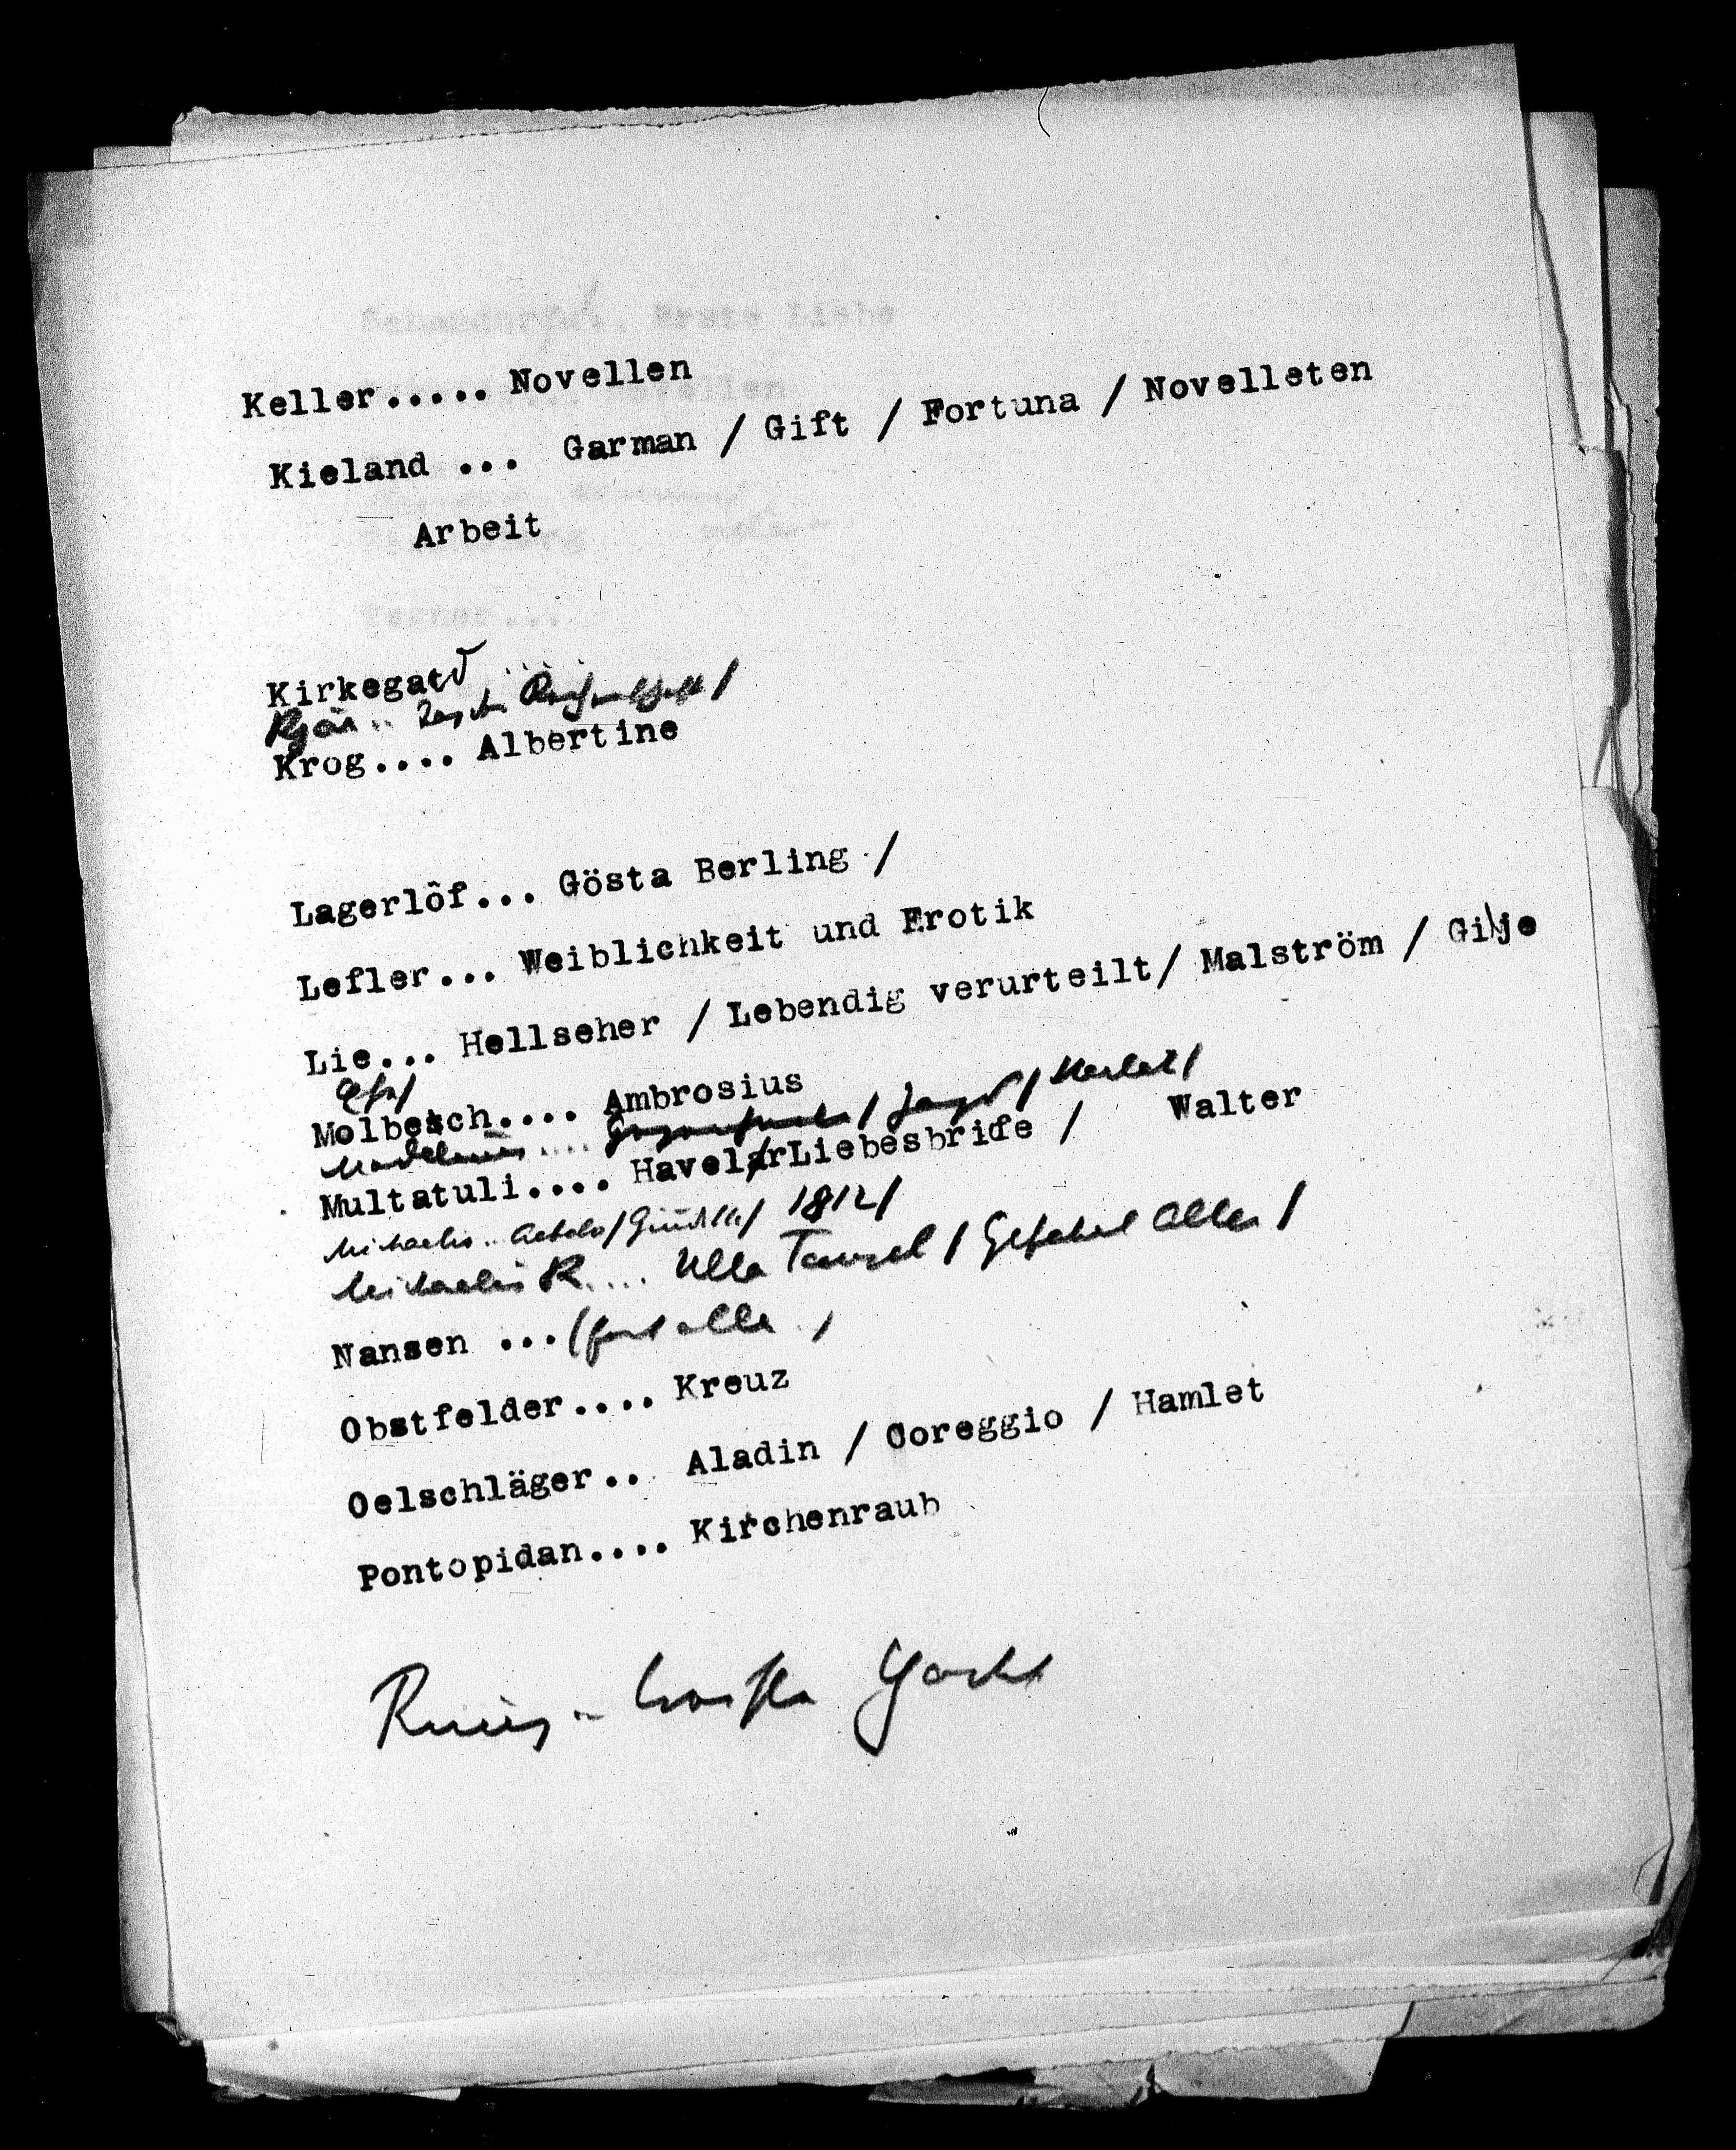 Keller..... Novellen
Kieland ... Garman / Gift / Fortuna / Novelleten
Arbeit
Kirkegard
Krog.... Albertine
Lagerlôf... Gösta Berling /
Lefler... Weiblichkeit und Erotik
Lie... Hellseher / Lebendig verurteilt/ Malström / Gilje
Molbech.... Ambrosius
Multatuli.... Havelar/Liebesbriefe / Walter
Michaelis .. Aebelo / 1812 /
Michaelis K.... Ulla / Alles /
Nansen ...(fast alle /
Obstfelder.... Kreuz
Oelschläger.. Aladin / Coreggio / Hamlet
Pontopidan.... Kirchenraub